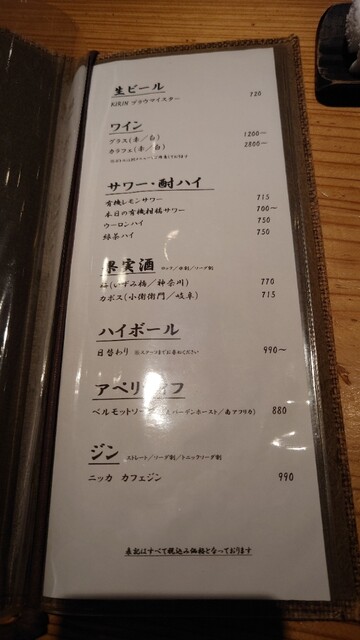 生ビール
KIRIN ブラウマイスター 720
ワイン
グラス(赤／白) 1200〜
カラフェ(赤／白) 2800〜
サワー・酎ハイ
有機レモンサワー 715
本日の有機柑橘サワー 700〜
ウーロンハイ 750
緑茶ハイ 750
果実酒 ロック／水割／ソーダ割
梅(いづみ橋／神奈川) 770
カボス(小衛門／岐阜) 715
ハイボール
日替わり ※スタッフまでお尋ねください 990〜
アペリティフ
ベルモットソーダ バーデンホースト／南アフリカ) 880
ジン ストレート／ソーダ割／トニックソーダ割
ニッカ カフェジン 990
表記はすべて税込み価格となっております